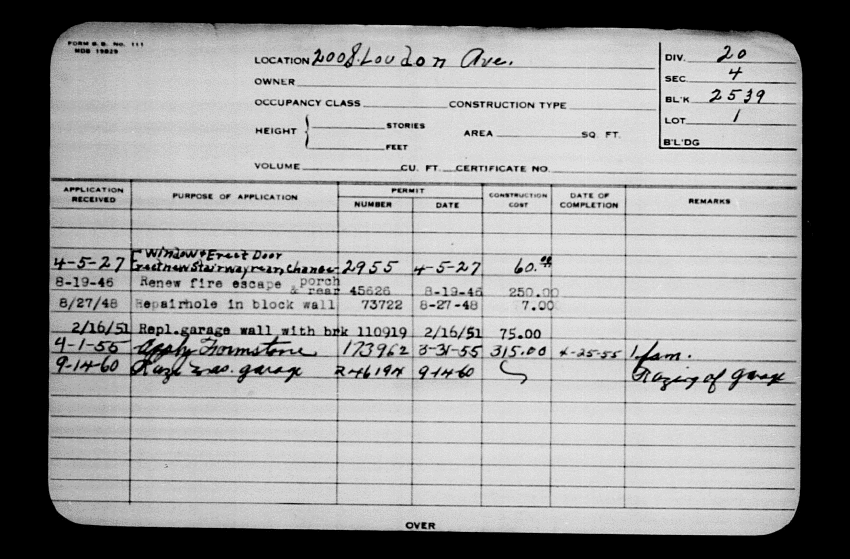 FORM B.B. No. 111
MDB 19829
LOCATION 2008 Loudon Ave.
OWNER
OCCUPANCY CLASS CONSTRUCTION TYPE
HEIGHT { STORIES
FEET
AREA SQ. FT.
VOLUME CU. FT. CERTIFICATE NO.
DIV. 20
SEC. 4
BL'K 2539
LOT 1
B'L'DG
APPLICATION RECEIVED PURPOSE OF APPLICATION PERMIT NUMBER DATE CONSTRUCTION COST DATE OF COMPLETION REMARKS
Window & Erect Door
4-5-27 Erect new Stairway rear, Change 2955 4-5-27 60.00
8-19-46 Renew fire escape & rear porch 45626 8-19-46 250.00
8/27/48 Repairhole in block wall 73722 8-27-48 7.00
2/16/51 Repl.garage wall with brk 110919 2/16/51 75.00
4-1-55 Apply Formstone 173962 3-31-55 315.00 4-25-55 1 fam.
9-14-60 Raze mas. garage 246194 9-14-60 Razing of garage
OVER